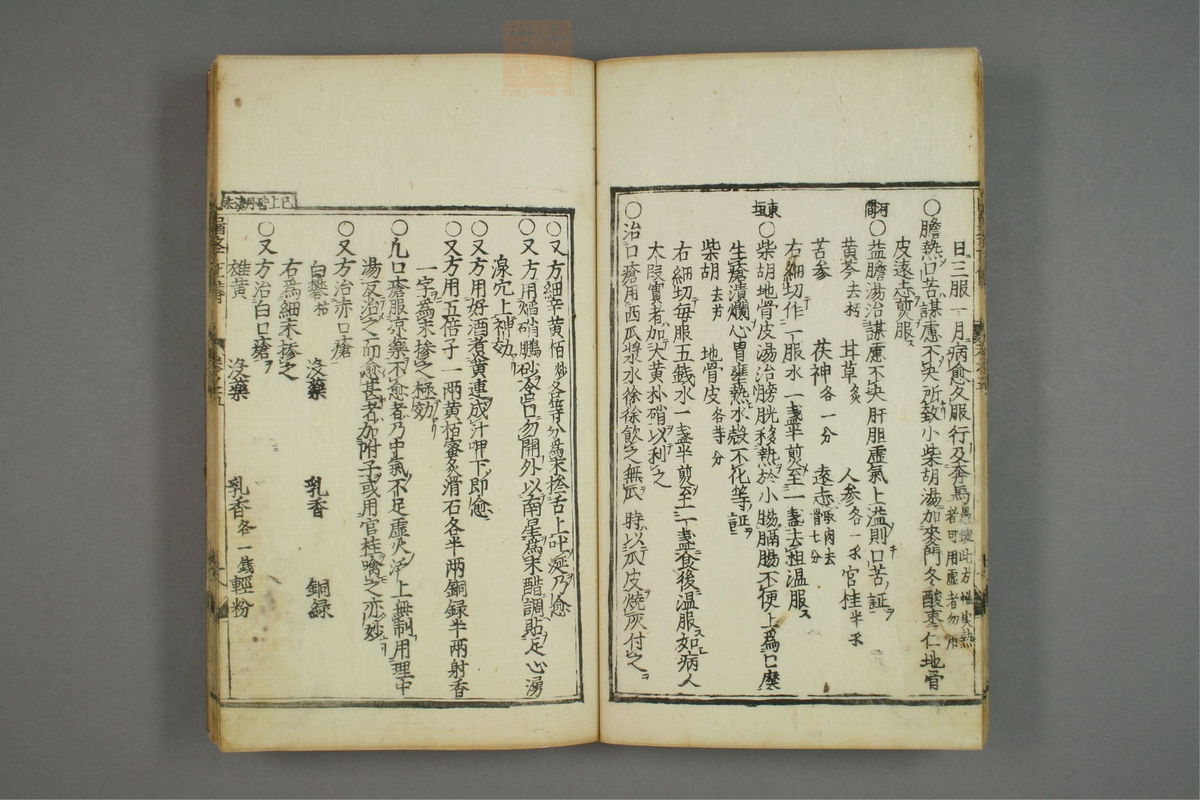 日三服一月病愈久服行及奔馬愚按此方惟実熱者可用虚者勿用
〇膽熱口苦謀慮不决所致小柴胡湯加麥門冬酸棗仁地骨
皮遠志煎服ス
河間〇益膽湯治謀慮不决肝胆虚氣上溢則口苦証
黄芩去朽 甘草炙 人参各一戔 官桂半戔
苦参 茯神各一分 遠志取肉去骨七分
右細切作一服水一盞半煎至一盞去粗温服ス
東垣〇柴胡地骨皮湯治膀胱移熱於小腸膈腸不便上為口糜
生瘡潰爛心胃壅熱水穀不化等証
柴胡去芦 地骨皮各等分
右細切毎服五銭水一盞半煎至一盞食後温服如病人
大叚實者加大黄朴硝以利之
〇治口瘡用西瓜漿水徐徐飲之無瓜時以瓜皮燒灰付之
〇又方細辛黄栢炒各等分為末掺舌上吐涎乃愈
〇又方用焔硝鵬砂含口勿開外以南星為末醋調貼足心湧
泉穴上神効
〇又方用好酒煮黄連成汁呷下即愈
〇又方用五倍子一兩黄栢蜜炙滑石各半兩銅録半兩射香
一字為末掺之極効
〇凢口瘡服凉藥不愈者乃中氣不足虚火泛上無制用理中
湯反治之而愈甚者加附子或用官桂噙之亦妙
〇又方治赤口瘡
白礬枯 沒藥 乳香 銅録
右為細末掺之
〇又方治白口瘡
雄黄 沒藥 乳香各一銭 輕粉
已上皆丹溪法